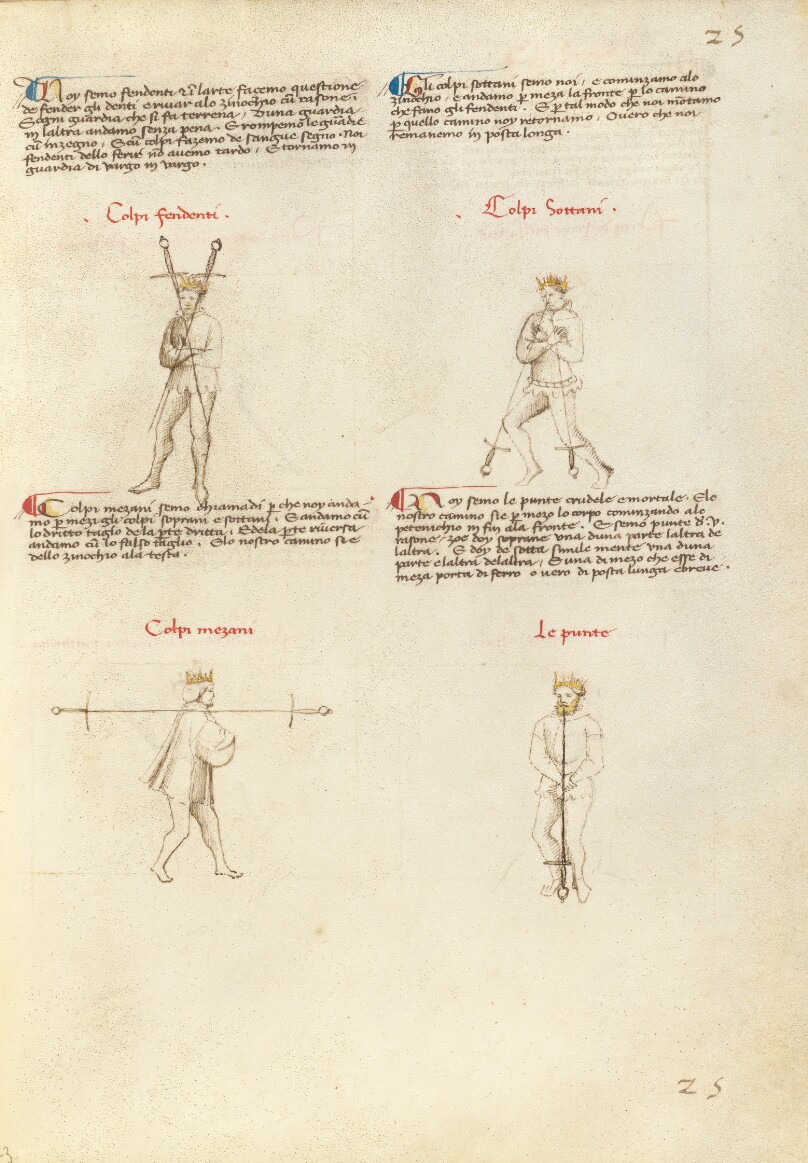 25
Noy semo fendenti e in larte façemo questione
de fender gli denti e rivar alo zinochio cum rasone.
E ogni guardia che si fa terrena, D'una guardia
in laltra andamo senza pena. E rompemo le guardie
cum inzegno, E cum colpi fazemo de sangue segno. Noi
fendenti dello ferir non avemo tardo, E tornamo in
guardia di vargo in vargo.
Gli colpi sottani semo noi, e cominzamo alo
zinochio, e andamo per meza la fronte per lo camino
che fano gli fendenti. E per tal modo che noi montamo
per quello camino noy retornamo, Overo che noi
remanemo in posta longa.
. Colpi fendenti .
. Colpi Sottani .
Colpi mezani semo chiamadi per che noy anda-
mo per mezi gli colpi soprani e sottani. E andamo cum
lo dritto taglo de la parte dritta, E dela parte riversa
andamo cum lo falso taglio. E lo nostro camino sie
dello zinochio ala testa.
Noy semo le punte crudele e mortale. E lo
nostro camino sie per mezo lo corpo cominzando alo
petenichio in fin ala fronte. E semo punte d. V.
rasone, zoe doy soprane una d'una parte l'altra de
laltra. E doy de sotta simile mente una d'una
parte e laltra del altra, E una di mezo che esse di
meza porta di ferro o vero di posta lunga e breve.
Colpi mezani
Le punte
25